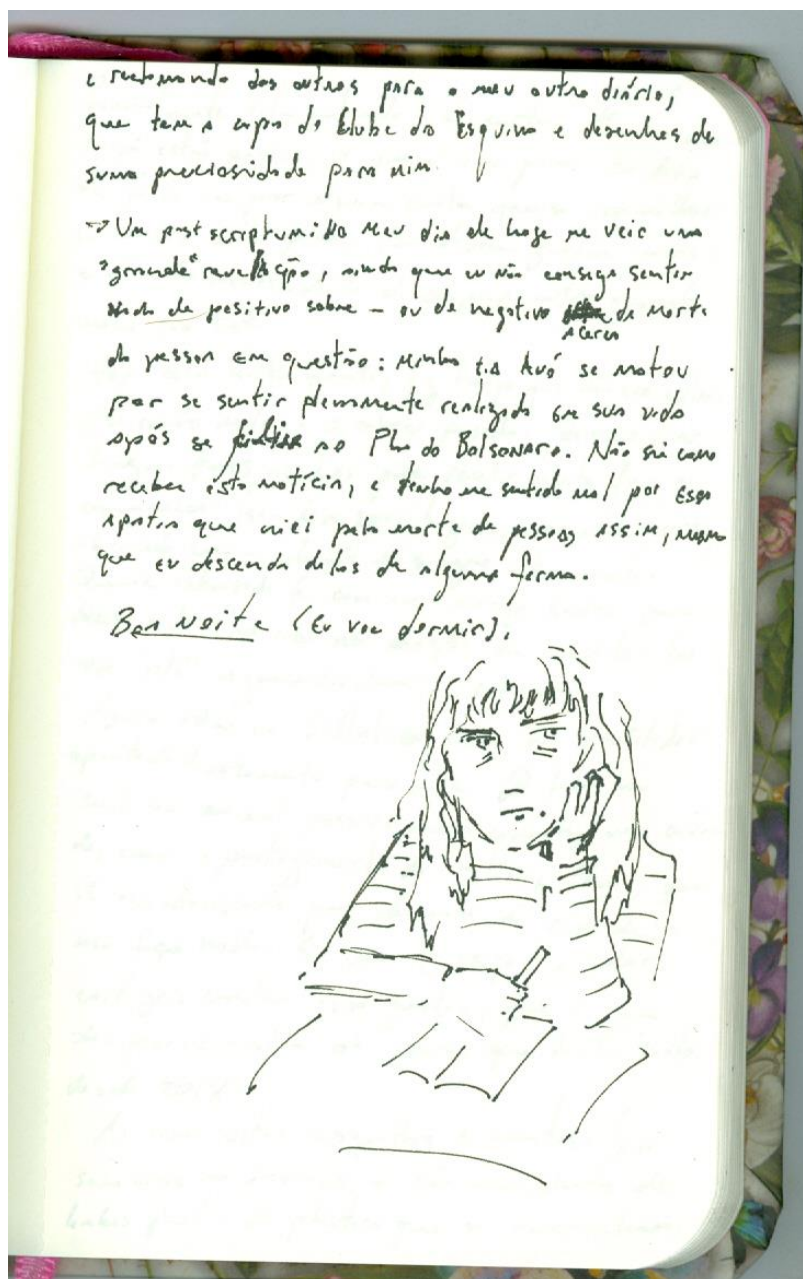 e retomando dos outros para o meu outro diário,
que tem a capa do Clube da Esquina e desenhos de
suma preciosidade para mim.
→ Um post scriptum: No meu dia de hoje me veio uma
"grande" revelação, ainda que eu não consiga sentir
nada de positivo sobre – ou de negativo acerca da morte
da pessoa em questão: minha tia Avó se matou
por se sentir plenamente realizada em sua vida
após se filiar ao PL do Bolsonaro. Não sei como
receber esta notícia, e tenho me sentido mal por essa
apatia que criei pela morte de pessoas assim, mesmo
que eu descenda delas de alguma forma.
Boa Noite (Eu vou dormir).